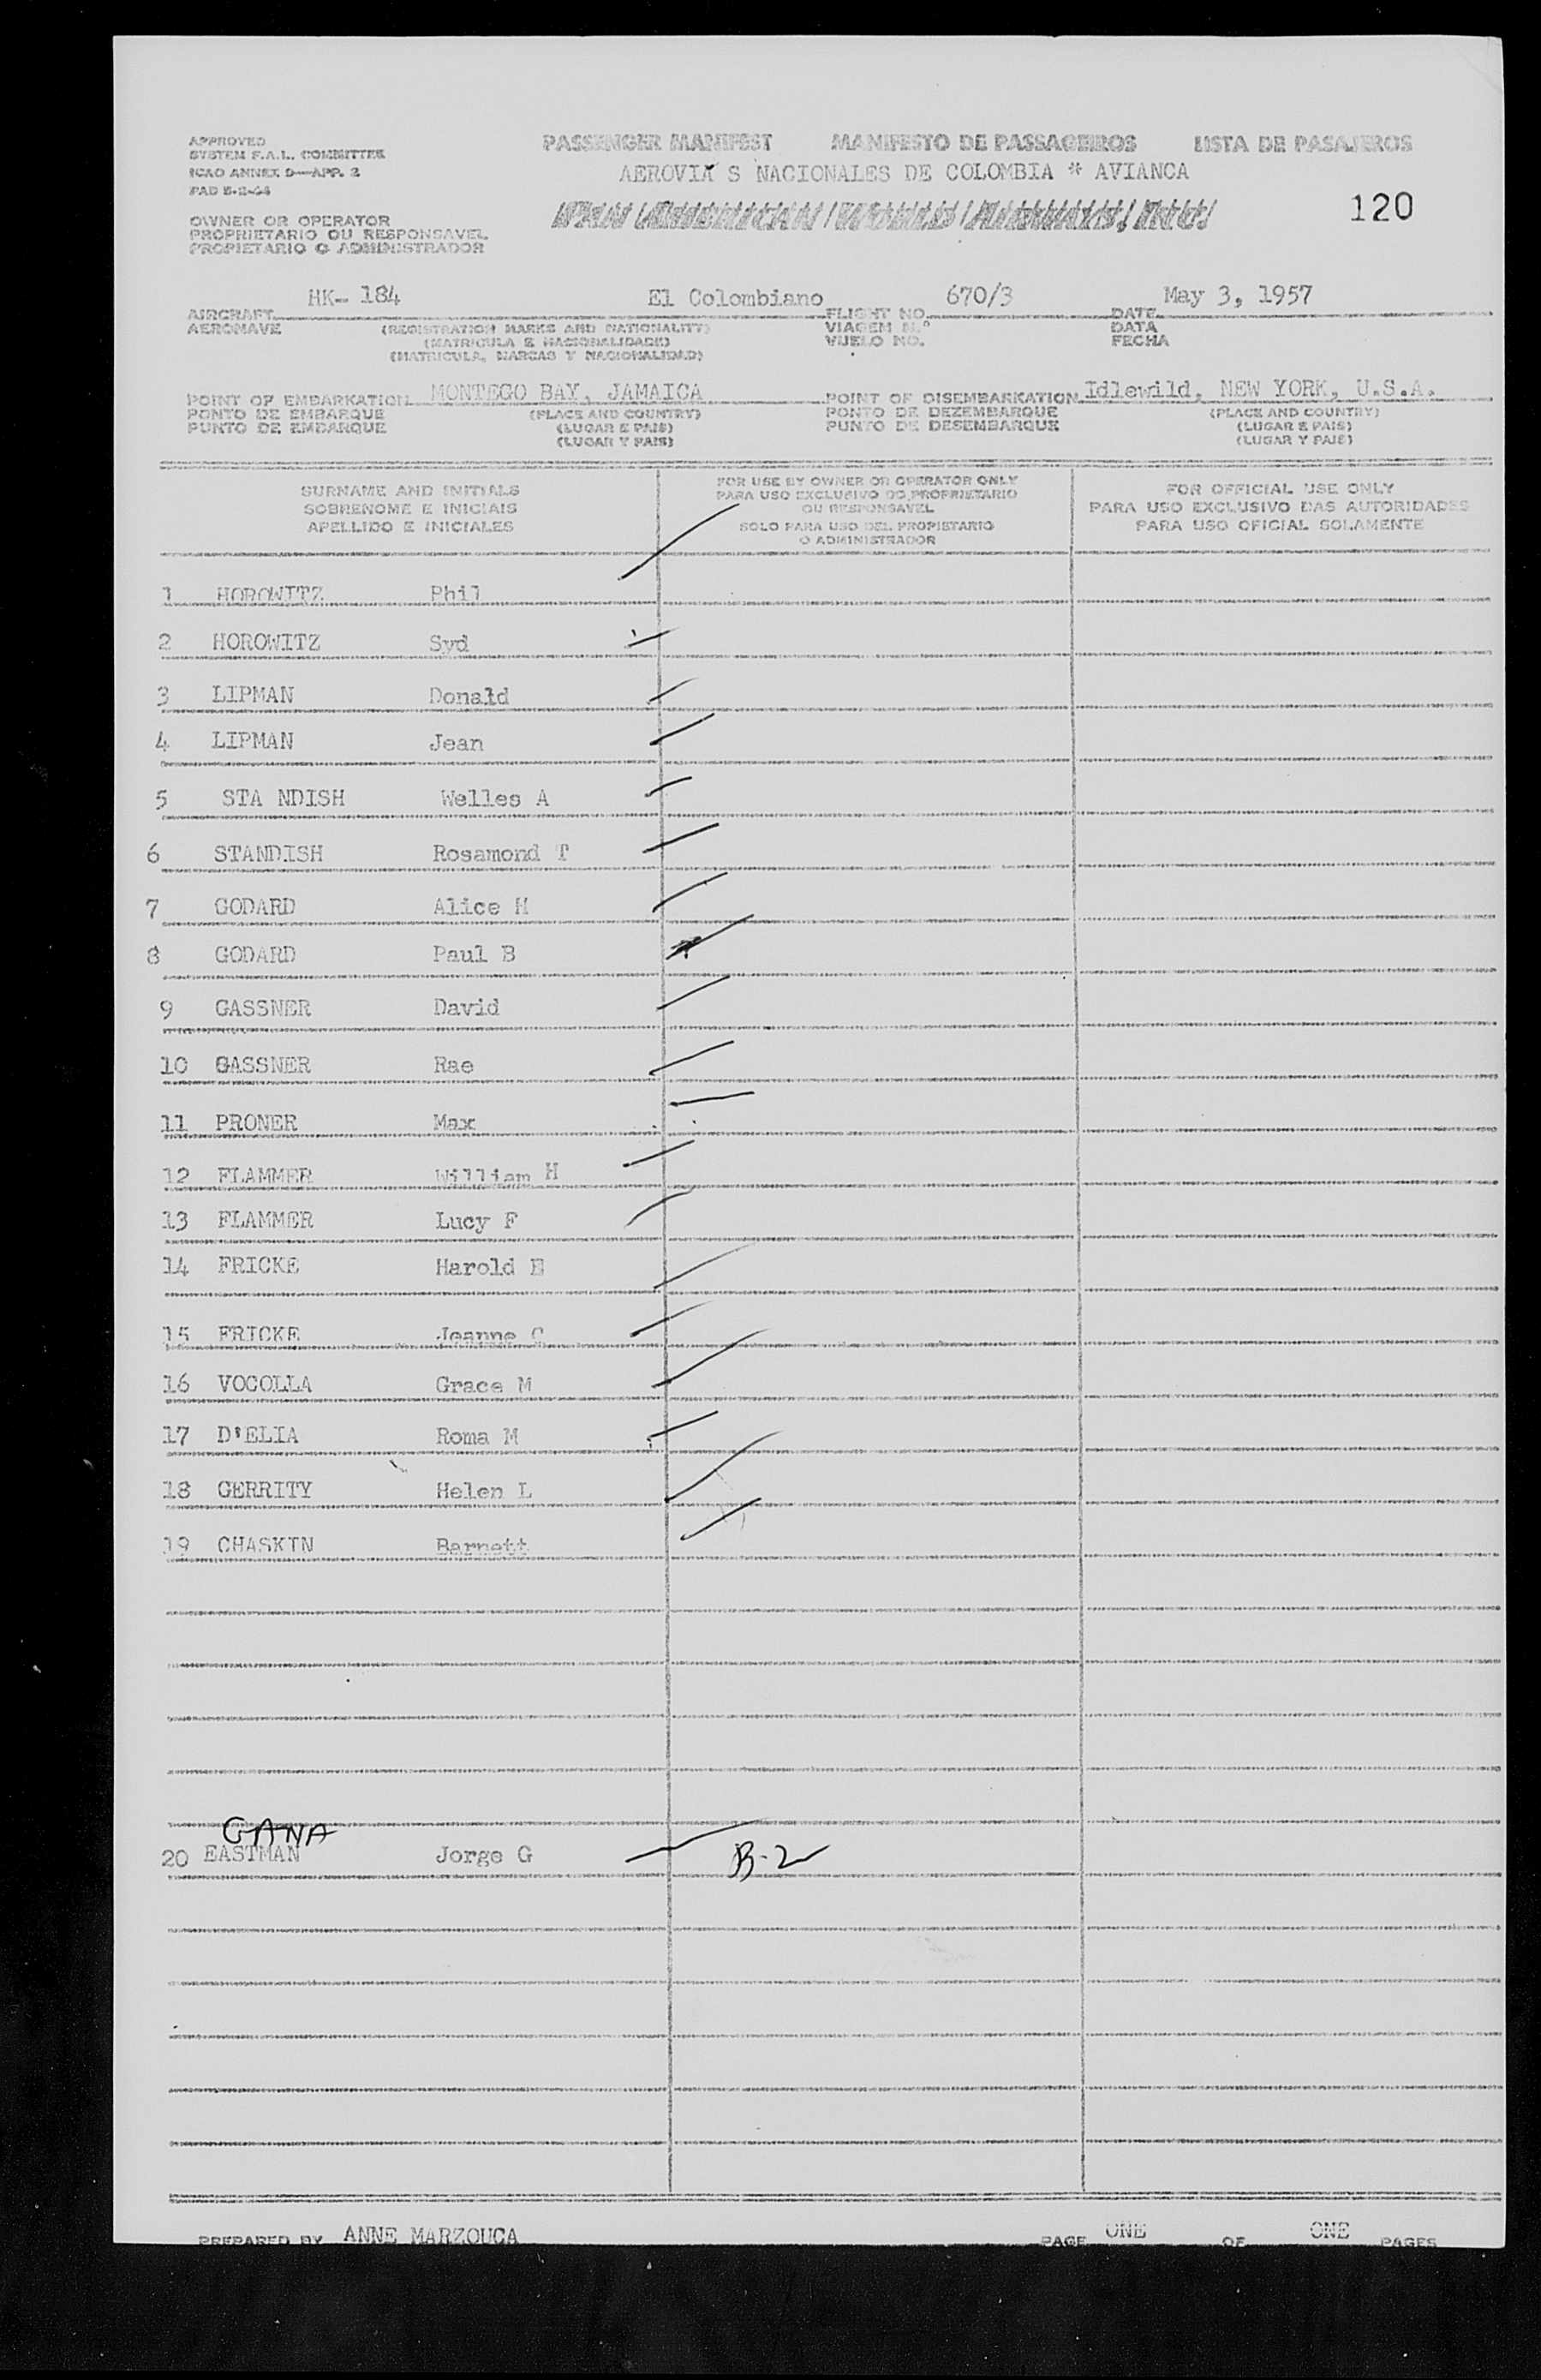 APPROVED
SYSTEM F.A.L. COMMITTEE
ICAO ANNEX 9—APP. 2
PASSENGER MANIFEST MANIFESTO DE PASSAGEIROS LISTA DE PASAJEROS
AEROVIA S NACIONALES DE COLOMBIA * AVIANCA
PAN AMERICAN WORLD AIRWAYS, INC.
120
OWNER OR OPERATOR
PROPRIETARIO OU RESPONSAVEL
PROPIETARIO O ADMINISTRADOR
HK- 184 El Colombiano 670/3 May 3, 1957
AIRCRAFT FLIGHT NO. DATE
AERONAVE (REGISTRATION MARKS AND NATIONALITY) VIAGEM N.º DATA
(MATRICULA E NACIONALIDADE) VUELO NO. FECHA
(MATRICULA, MARCAS Y NACIONALIDAD)
POINT OF EMBARKATION MONTEGO BAY, JAMAICA POINT OF DISEMBARKATION Idlewild, NEW YORK, U.S.A.
PONTO DE EMBARQUE (PLACE AND COUNTRY) PONTO DE DEZEMBARQUE (PLACE AND COUNTRY)
PUNTO DE EMBARQUE (LUGAR E PAIS) PUNTO DE DESEMBARQUE (LUGAR E PAIS)
(LUGAR Y PAIS) (LUGAR Y PAIS)
SURNAME AND INITIALS
SOBRENOME E INICIAIS
APELLIDO E INICIALES
FOR USE BY OWNER OR OPERATOR ONLY
PARA USO EXCLUSIVO DO PROPRIETARIO
OU RESPONSAVEL
SOLO PARA USO DEL PROPIETARIO
O ADMINISTRADOR
FOR OFFICIAL USE ONLY
PARA USO EXCLUSIVO DAS AUTORIDADES
PARA USO OFICIAL SOLAMENTE
1 HOROWITZ Phil
2 HOROWITZ Syd
3 LIPMAN Donald
4 LIPMAN Jean
5 STA NDISH Welles A
6 STANDISH Rosamond T
7 GODARD Alice M
8 GODARD Paul B
9 GASSNER David
10 GASSNER Rae
11 PRONER Max
12 FLAMMER William H
13 FLAMMER Lucy F
14 FRICKE Harold E
15 FRICKE Jeanne C
16 VOCOLLA Grace M
17 D'ELIA Roma M
18 GERRITY Helen L
19 CHASKIN Barnett
GANA
20 EASTMAN Jorge G B-2
PREPARED BY ANNE MARZOUCA PAGE ONE OF ONE PAGES